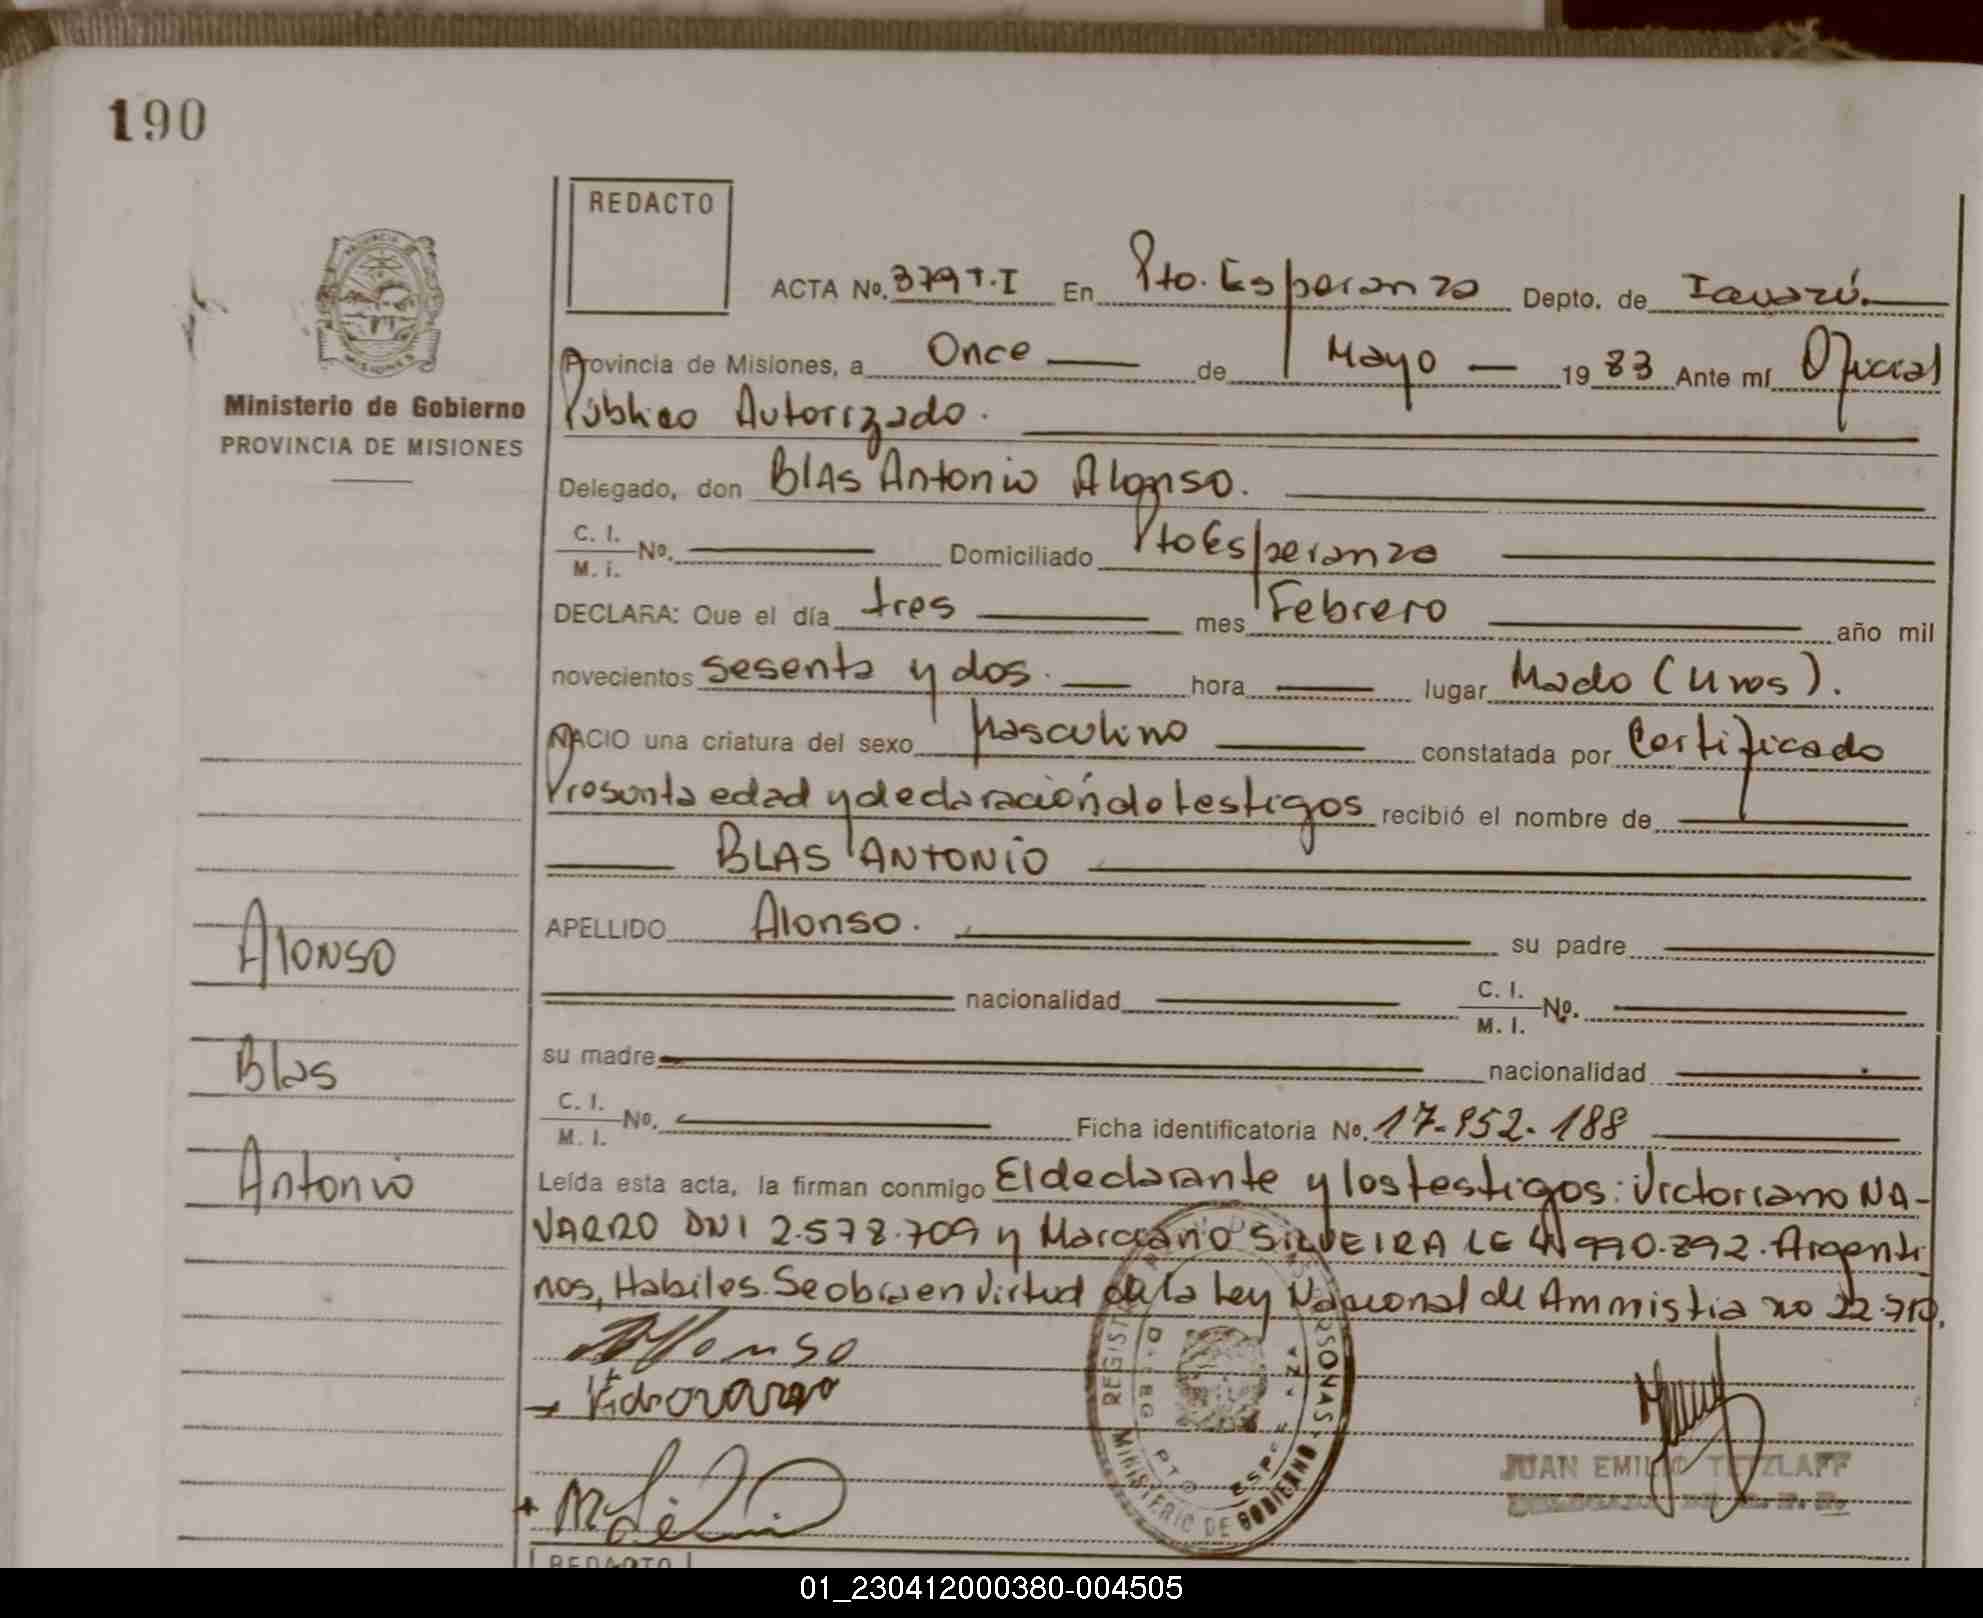 190
REDACTO
ACTA No. 379 T.I En Pto. Esperanza Depto. de Iguazú.
Provincia de Misiones, a Once de Mayo 1983 Ante mí Oficial
Ministerio de Gobierno
PROVINCIA DE MISIONES
Público Autorizado.
Delegado, don Blas Antonio Alonso.
C. I.
M. i. No. Domiciliado Pto Esperanza
DECLARA: Que el día tres mes Febrero año mil
novecientos sesenta y dos. hora lugar Mado (Mnes).
NACIO una criatura del sexo Masculino constatada por Certificado
Presunta edad y declaración de testigos recibió el nombre de
BLAS ANTONIO
APELLIDO Alonso. su padre
Alonso
nacionalidad C. I.
M. I. No.
su madre nacionalidad
Blas
C. I.
M. I. No. Ficha identificatoria No. 17-952-188
Antonio
Leída esta acta, la firman conmigo El declarante y los testigos: Victoriano NA-
VARRO DNI 2.578.709 y Marciano SILVEIRA LE 4.990.892. Argenti
nos, Habiles. Se obra en Virtud de la Ley Nacional de Amnistia no 22.710.
Alonso
REGIST PERSONAS
MINISTERIO DE GOBIERNO
PTO ESP
JUAN EMILIO TETZLAFF
REDACTO
01_230412000380-004505